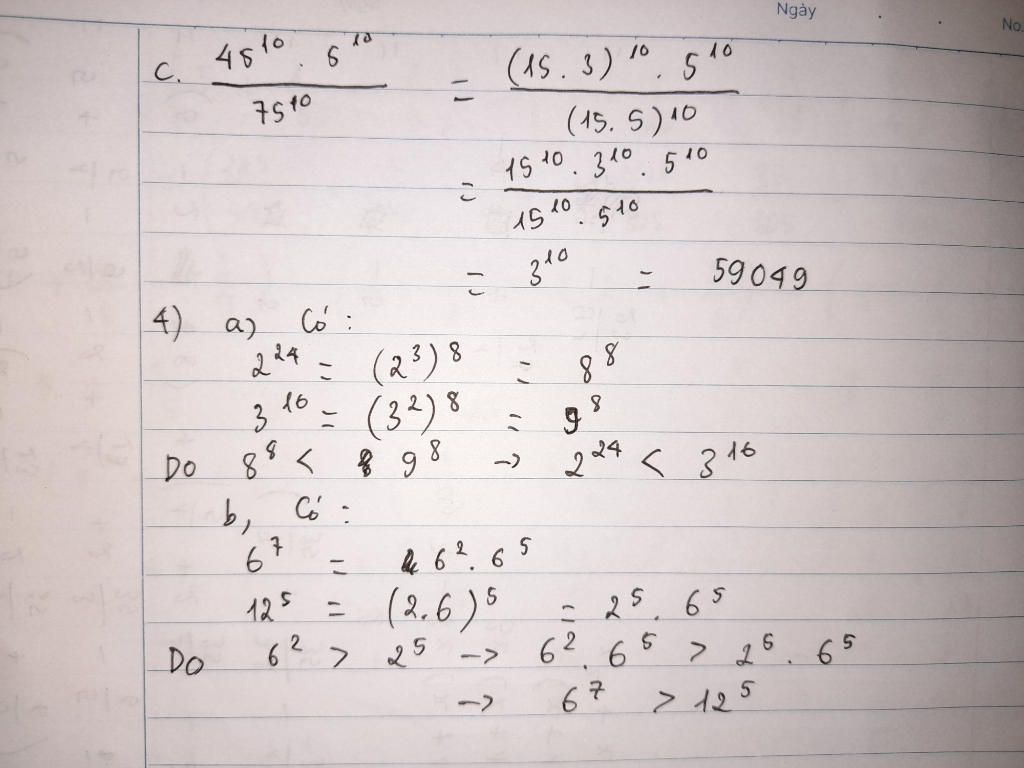 Ngày
No.
c. \frac{45^{10} . 5^{10}}{75^{10}} = \frac{(15 . 3)^{10} . 5^{10}}{(15 . 5)^{10}}
= \frac{15^{10} . 3^{10} . 5^{10}}{15^{10} . 5^{10}}
= 3^{10} = 59049
4) a) Có :
2^{24} = (2^3)^8 = 8^8
3^{16} = (3^2)^8 = 9^8
Do 8^8 < 9^8 → 2^{24} < 3^{16}
b, Có :
6^7 = 6^2 . 6^5
12^5 = (2.6)^5 = 2^5 . 6^5
Do 6^2 > 2^5 → 6^2 . 6^5 > 2^5 . 6^5
→ 6^7 > 12^5